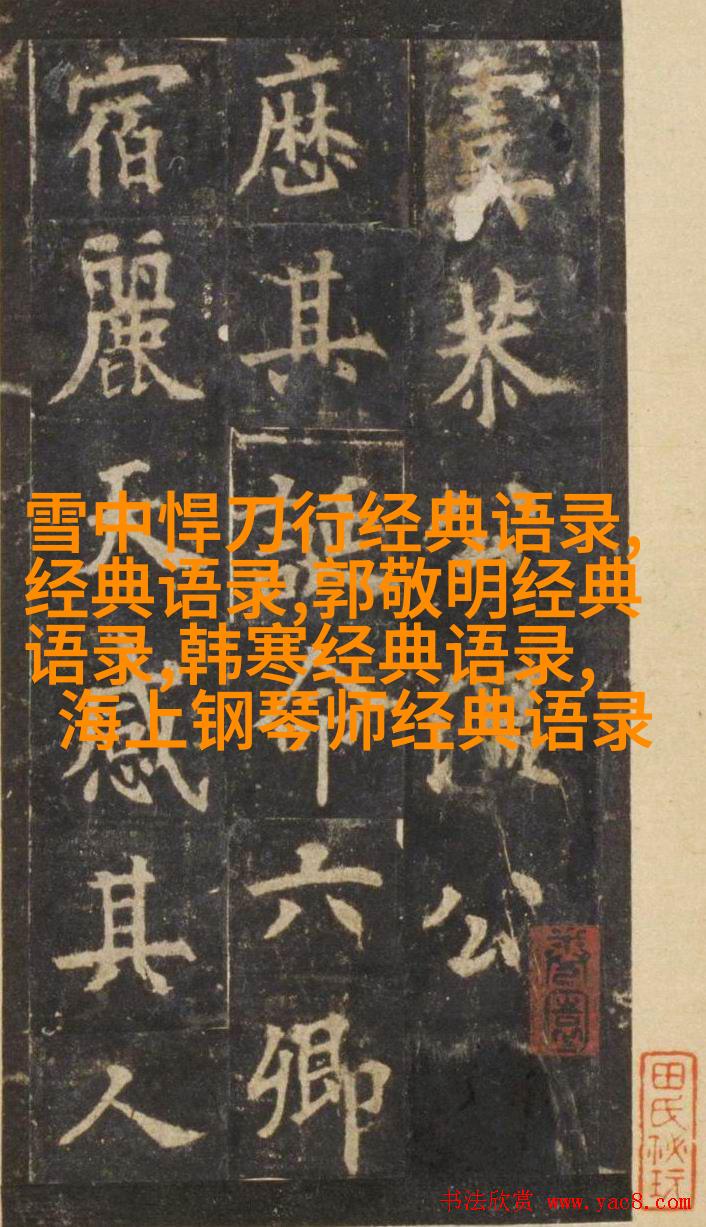 恭公
厯其誥命六卿
宿麗天感其人
雪中悍刀行经典语录,
经典语录,郭敬明经典
语录,韩寒经典语录,
海上钢琴师经典语录
田氏祕玩
书法欣赏 www.yac8.com